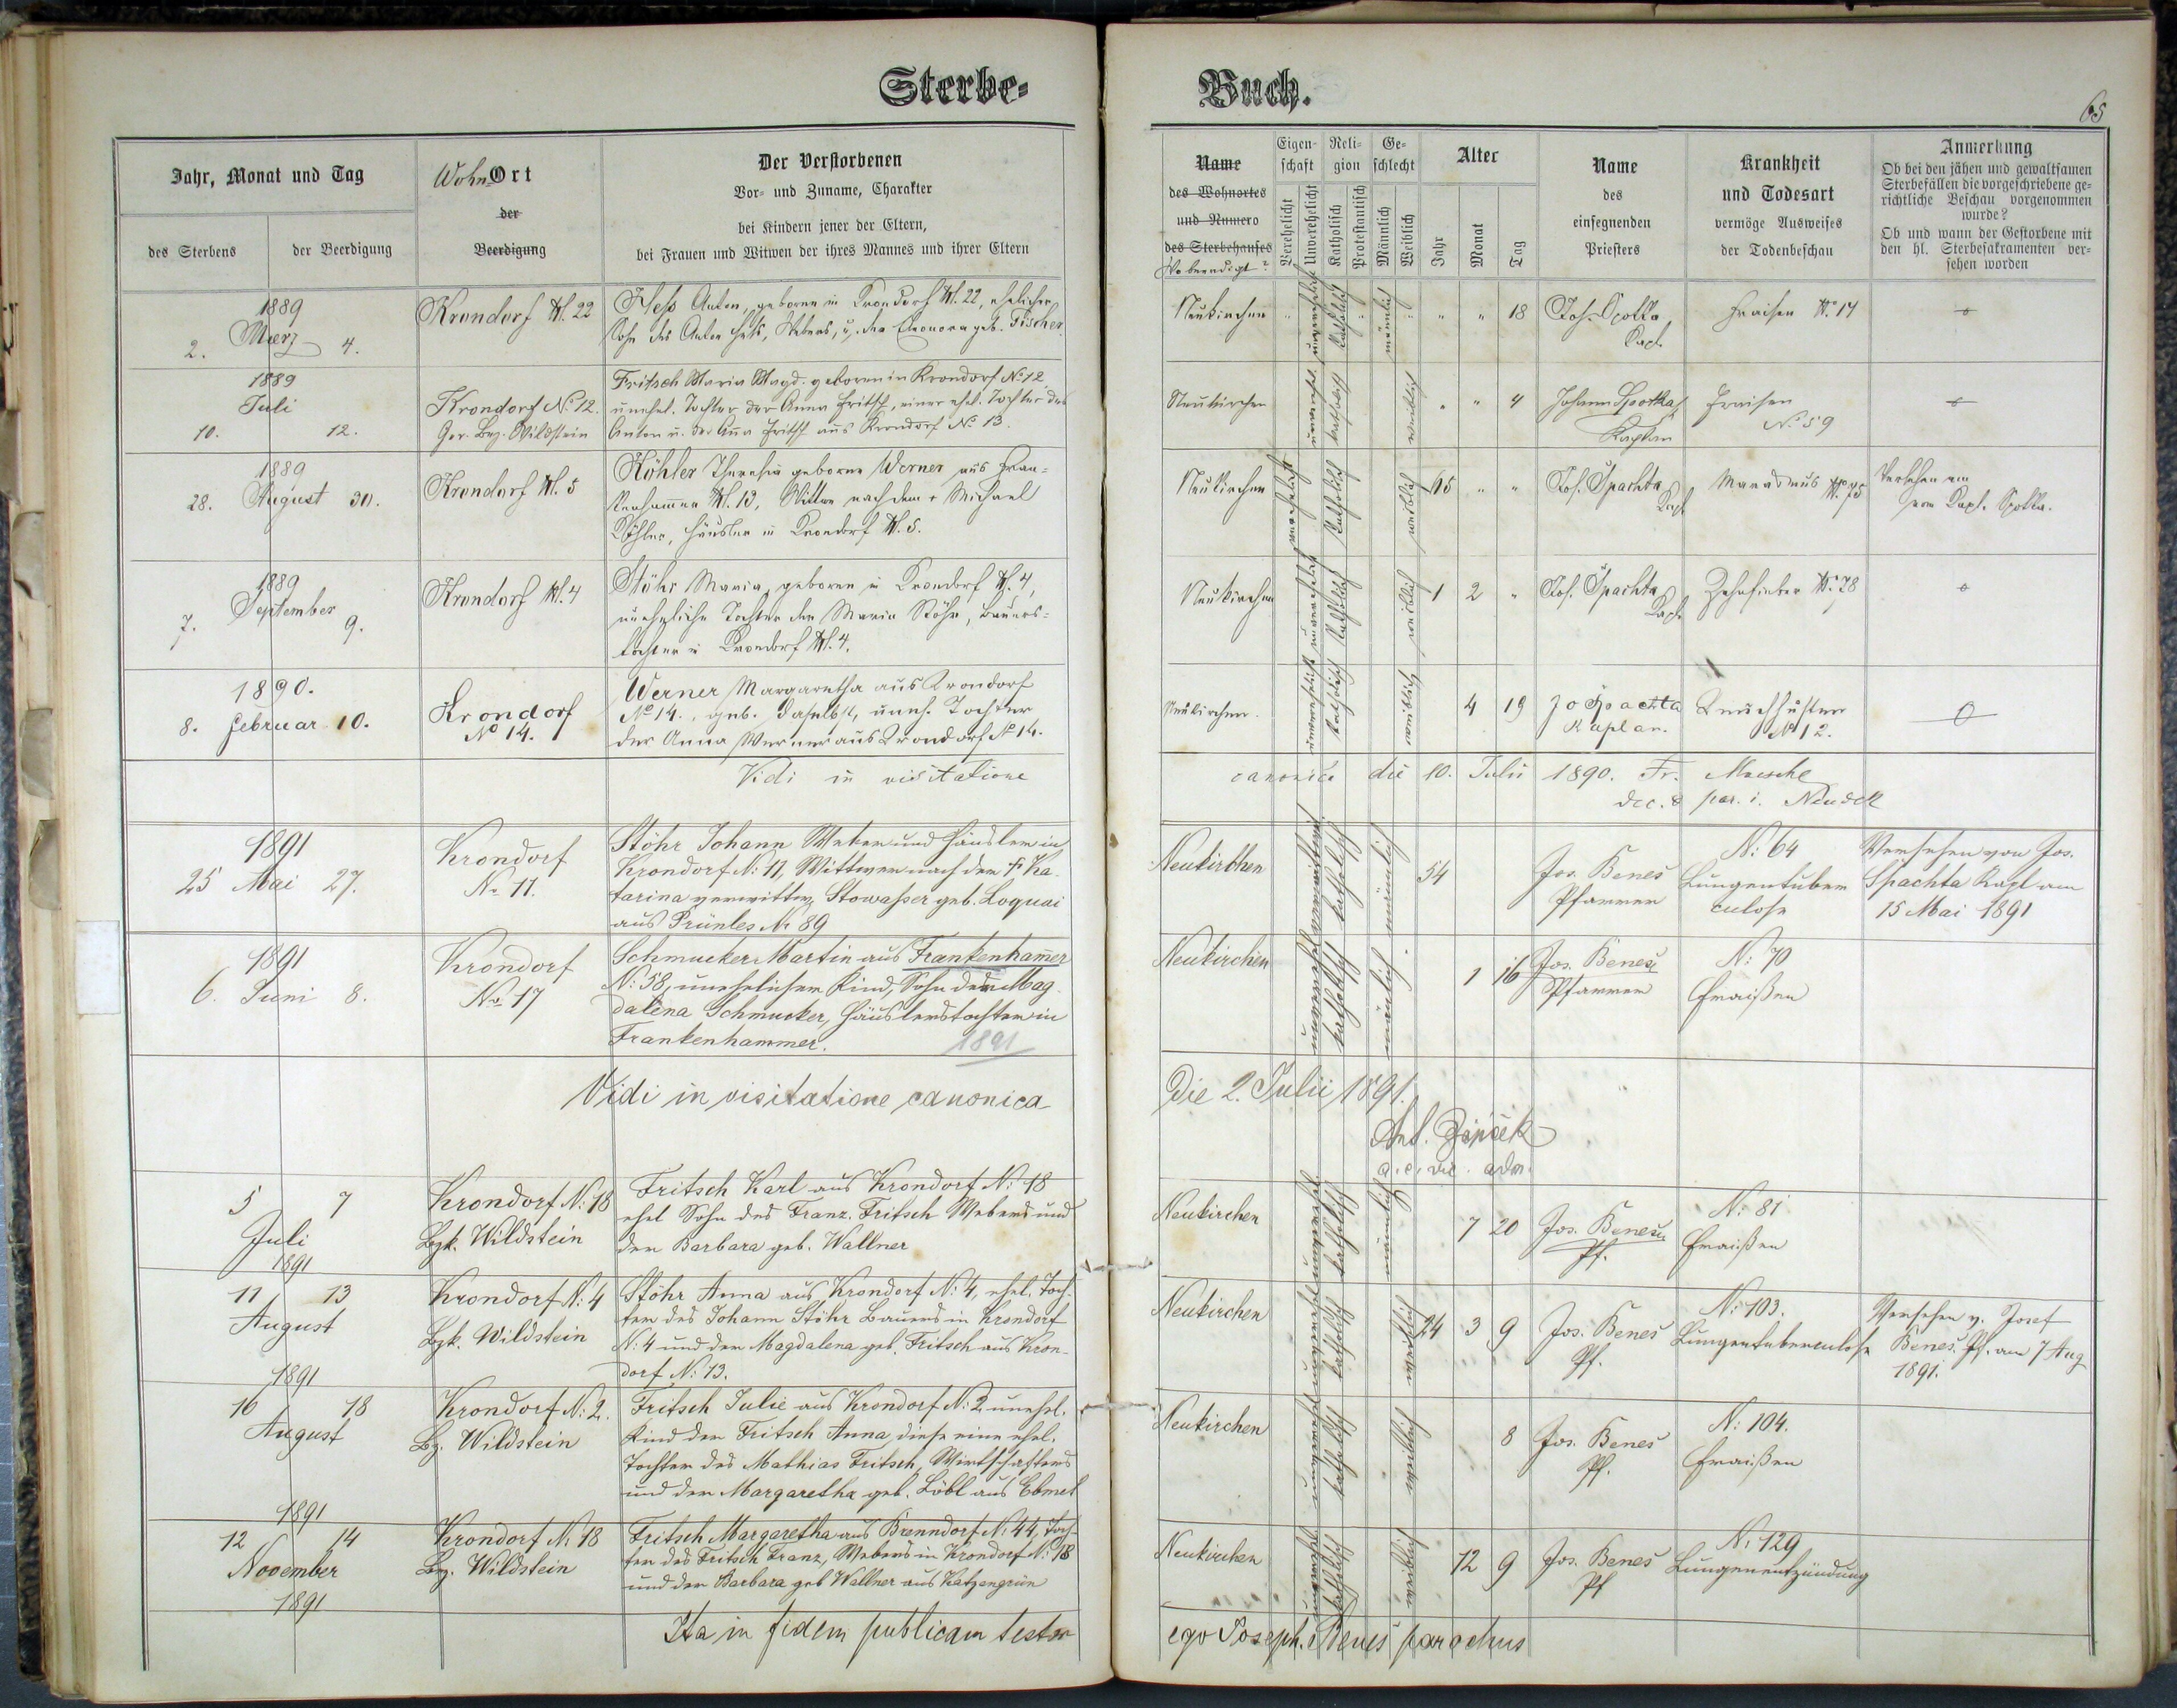 Sterbe- Buch.
65
Jahr, Monat und Tag
des Sterbens
der Beerdigung
Wohn-Ort
der
Beerdigung
Der Verstorbenen
Vor- und Zuname, Charakter
bei Kindern jener der Eltern,
bei Frauen und Witwen der ihres Mannes und ihrer Eltern
Name
des Wohnortes
und Numero
des Sterbehauses
Wo beerdigt?
Eigenschaft
Verehelicht
Unverehelicht
Religion
Katholisch
Protestantisch
Geschlecht
Männlich
Weiblich
Alter
Jahr
Monat
Tag
Name
des
einsegnenden
Priesters
Krankheit
und Todesart
vermöge Ausweises
der Todenbeschau
Anmerkung
Ob bei den jähen und gewaltsamen
Sterbefällen die vorgeschriebene ge-
richtliche Beschau vorgenommen
wurde?
Ob und wann der Gestorbene mit
den hl. Sterbesakramenten ver-
sehen worden
1889
Maerz
2. 4.
Krondorf N. 22
Hess Anton, geboren in Krondorf N. 22, ehelicher
Sohn des Anton Heß, Webers, u. der Eleonora geb. Fischer.
Neukirchen
unverehelicht katholisch männlich
" " 18
Joh. Spotka
Kapl.
Fraisen N. 14
1889
Juli
10. 12.
Krondorf No 12.
Ger. Bez. Wildstein
Fritsch Maria Magd. geboren in Krondorf No 12,
unehel. Tochter der Anna Fritsch, einer ehel. Tochter des
Anton u. der Anna Fritsch aus Krondorf No 13.
Neukirchen
weiblich
" " 4
Johann Spotka
Kaplan
Fraisen
No 59
1889
28. August 30.
Krondorf N. 5
Köhler Theresia geborene Werner aus Fran-
kenhammer N. 13, Wittwe nach dem + Michael
Köhler, Häusler in Krondorf N. 5.
Neukirchen
verehelicht katholisch weiblich
65 " "
Jos. Spachta
Kapl.
Marasmus N. 75
Versehen
vom Kapl. Spotka.
1889
September
7. 9.
Krondorf N. 4
Stöhr Maria, geboren in Krondorf N. 4,
uneheliche Tochter der Maria Stöhr, Bauers-
tochter in Krondorf N. 4.
Neukirchen
unverehelicht katholisch weiblich
1 2 "
Jos. Spachta
Kapl.
Zehrfieber N. 78
1890.
8. Februar 10.
Krondorf
No 14.
Werner Margaretha aus Krondorf
No 14., geb. daselbst, uneh. Tochter
der Anna Werner aus Krondorf No 14.
Neukirchen.
unverehelicht katholisch weiblich
4 19
Jo Spachta
Kaplan.
Keuchhusten
No 12.
Vidi in visitatione canonica die 10. Julii 1890. Fr. Maesche
dec. & par. i. Neudek
1891
25 Mai 27.
Krondorf
No 11.
Stöhr Johann Weber und Häusler in
Krondorf N: 11, Wittwer nach der + Ka-
tarina verwittw. Stowasser geb. Loquai
aus Prünles N. 89
Neukirchen
verwittwet katholisch männlich
54
Jos. Benes
Pfarrer
N: 64
Lungentuber
culose
Versehen von Jos.
Spachta Kapl am
15 Mai 1891
1891
6. Juni 8.
Krondorf
No. 17
Schmucker Martin aus Frankenhammer
N: 58, uneheliches Kind, Sohn der Mag-
dalena Schmucker, Häuslerstochter in
Frankenhammer.
1891
Neukirchen
katholisch männlich
1 16
Jos. Benes
Pfarrer
N: 70
Fraißen
Vidi in visitatione canonica Die 2. Julii 1891.
5 7
Juli
1891
Krondorf N: 18
Bzk. Wildstein
Fritsch Karl aus Krondorf N: 18
ehel Sohn des Franz. Fritsch Webers und
der Barbara geb. Wallner
Neukirchen
katholisch männlich
7 20
Jos. Benes
Pf.
N: 81
Fraißen
11 13
August
1891
Krondorf N: 4
Bzk. Wildstein
Stöhr Anna aus Krondorf N: 4, ehel. Toch-
ter des Johann Stöhr Bauers in Krondorf
N: 4 und der Magdalena geb. Fritsch aus Kron-
dorf N: 13.
Neukirchen
katholisch weiblich
24 3 9
Jos. Benes
Pf.
N: 103.
Lungentuberculose
Versehen v. Josef
Benes. Pf. am 7 Aug
1891.
16 18
August
1891
Krondorf N: 2.
Bz. Wildstein
Fritsch Julie aus Krondorf N: 2 unehel.
Kind der Fritsch Anna diese eine ehel.
Tochter des Mathias Fritsch, Wirtschafters
und der Margaretha geb. Löbl aus Ebmet
Neukirchen
katholisch weiblich
8
Jos. Benes
Pf.
N: 104.
Fraißen
12 14
November
1891
Krondorf N: 18
Bz. Wildstein
Fritsch Margaretha aus Brenndorf N: 44, Toch-
ter des Fritsch Franz, Webers in Krondorf N: 18
und der Barbara geb Wallner aus Katzengrün
Neukirchen
katholisch weiblich
12 9
Jos. Benes
Pf
N: 129
Lungenentzündung
Ita in fidem publicam testor ego Joseph. Benes parochus